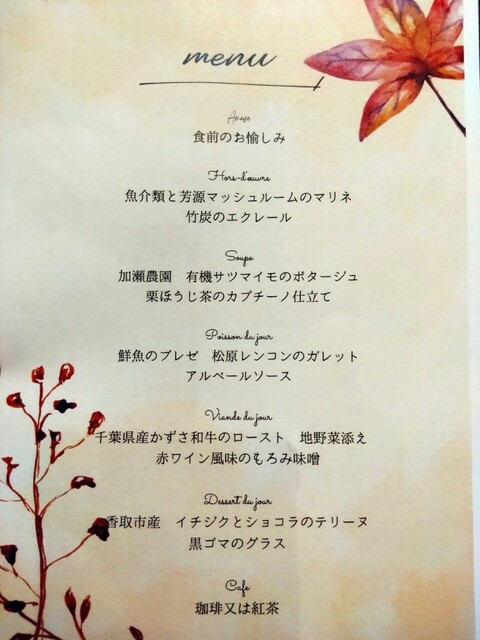 menu
食前のお愉しみ
Hors-d'œuvre
魚介類と芳源マッシュルームのマリネ
竹炭のエクレール
Soupe
加瀬農園 有機サツマイモのポタージュ
栗ほうじ茶のカプチーノ仕立て
Poisson du jour
鮮魚のブレゼ 松原レンコンのガレット
アルベールソース
Viande du jour
千葉県産かずさ和牛のロースト 地野菜添え
赤ワイン風味のもろみ味噌
Dessert du jour
香取市産 イチジクとショコラのテリーヌ
黒ゴマのグラス
Cafe
珈琲又は紅茶